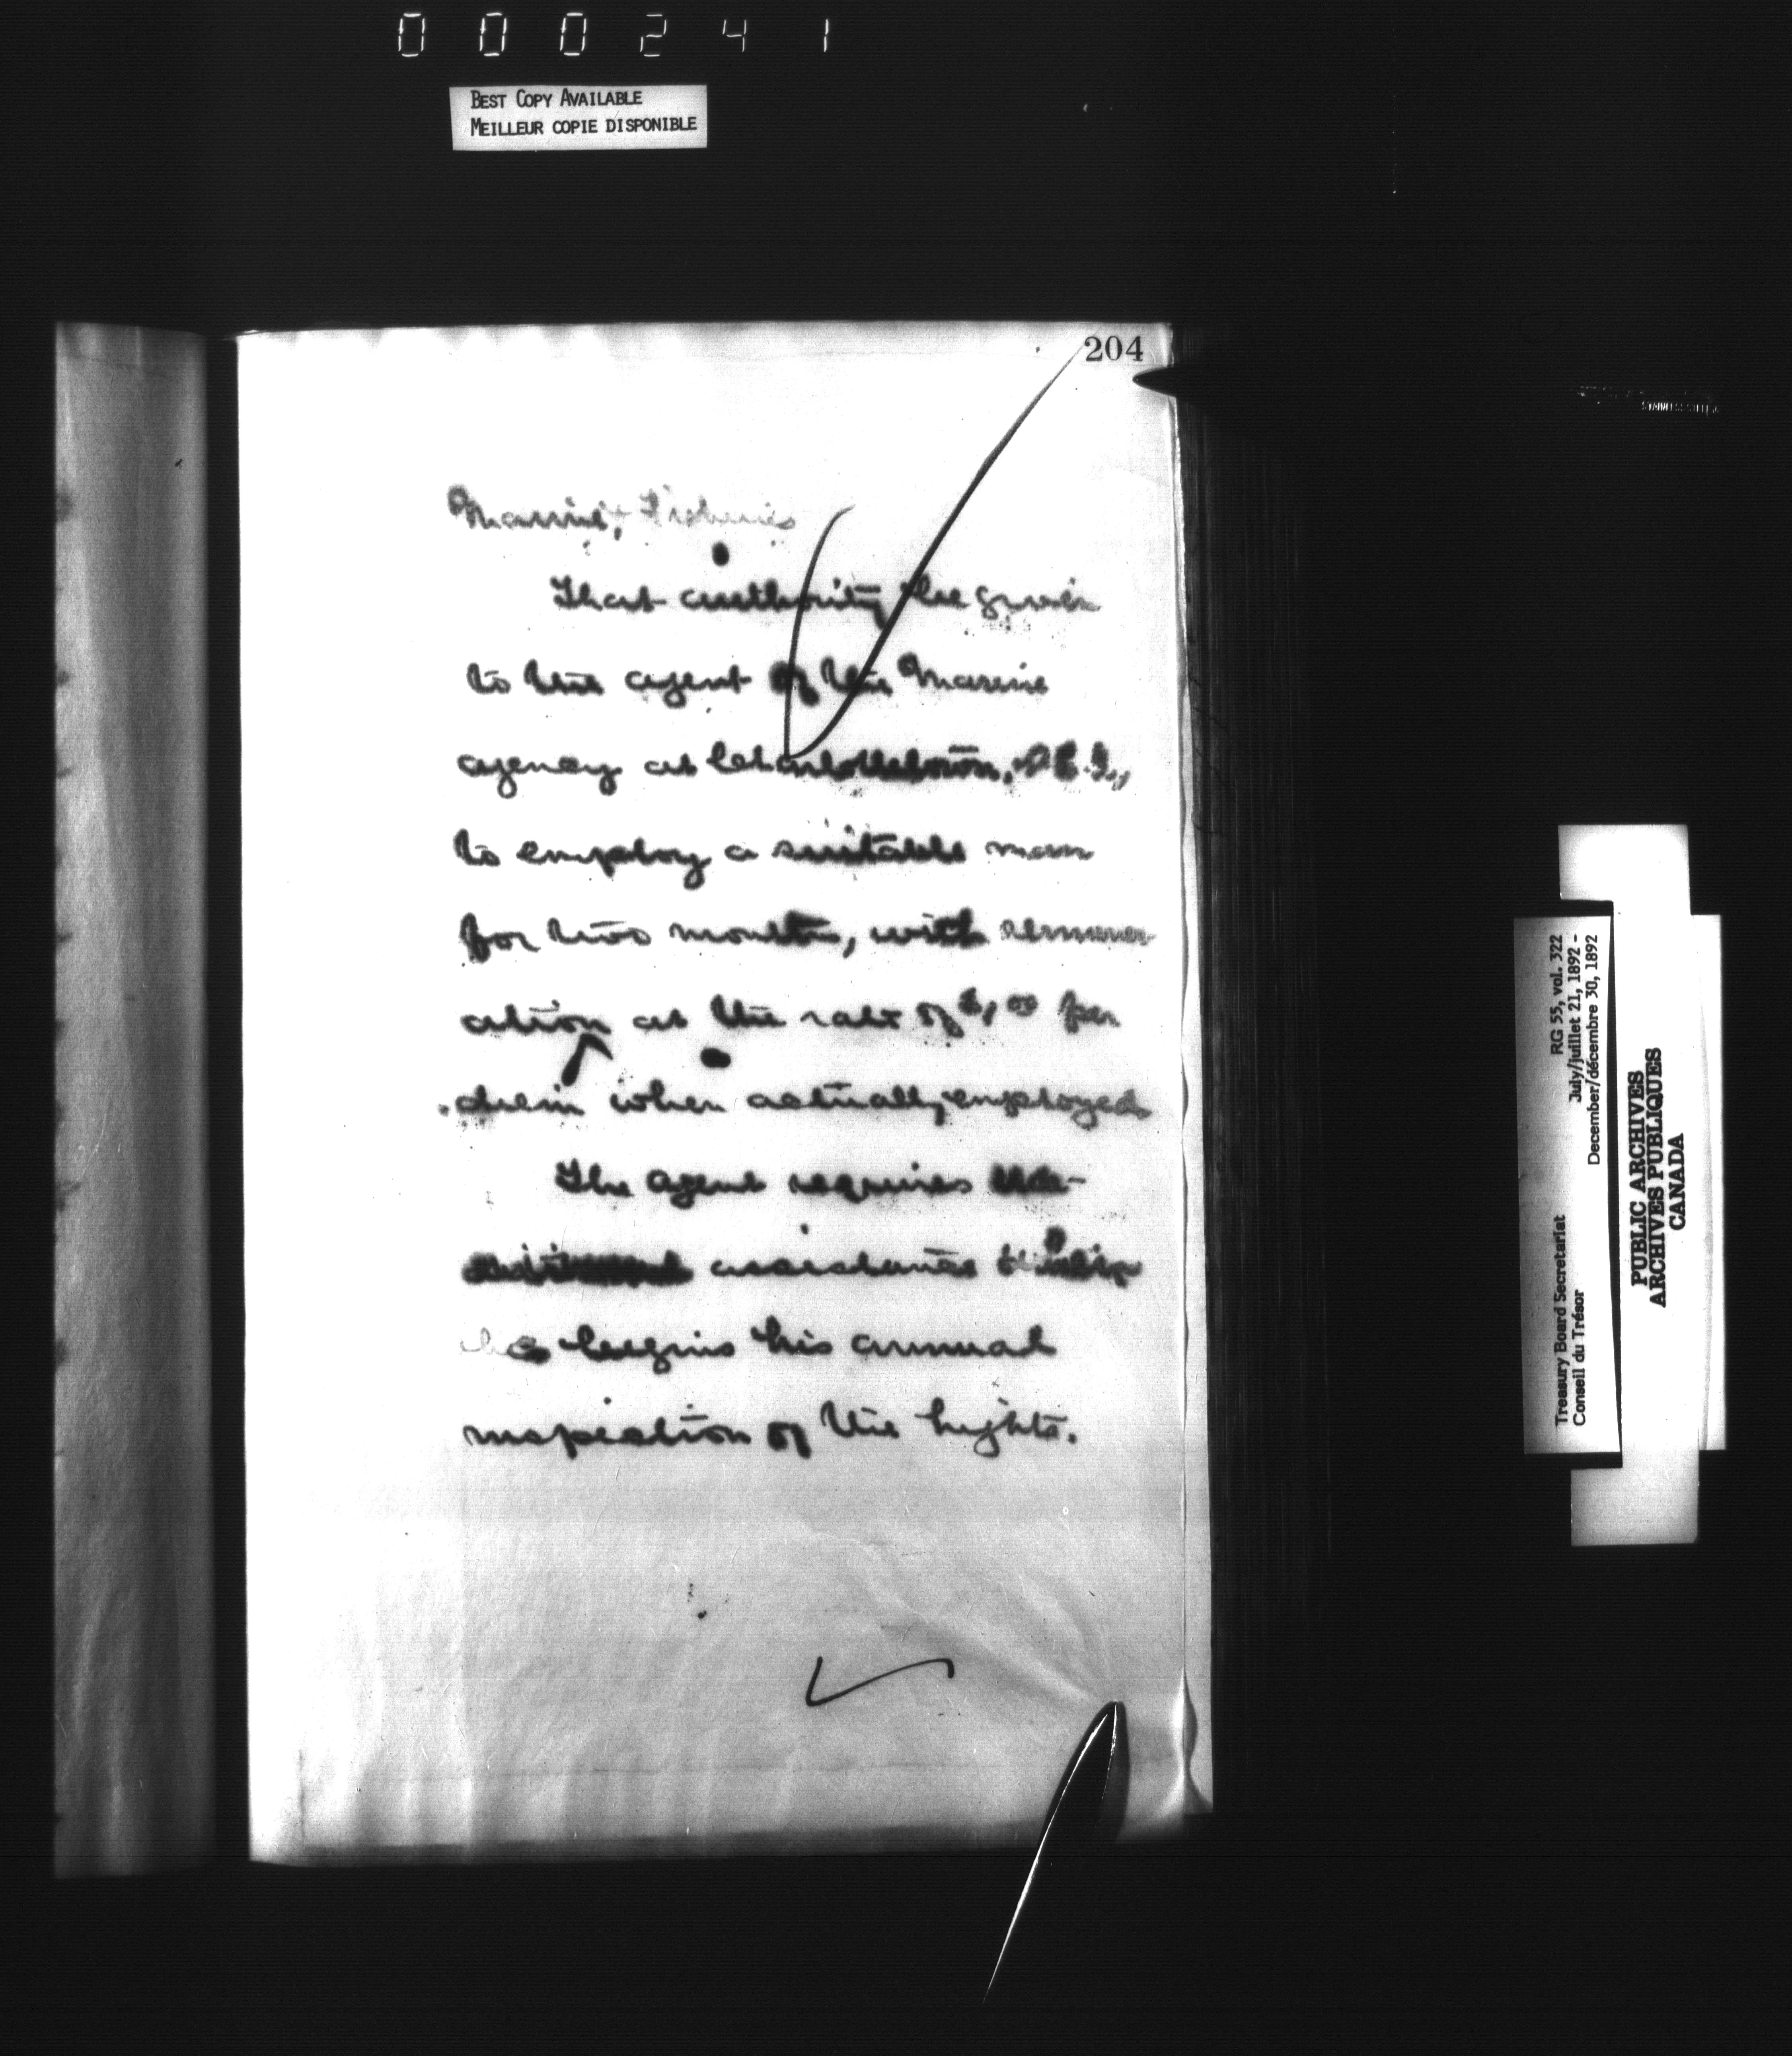 000241
BEST COPY AVAILABLE
MEILLEUR COPIE DISPONIBLE
204
Marine & Fisheries
That authority be given
to the agent of the Marine
agency at Charlottetown, P.E.I.,
to employ a suitable man
for two months, with remuner-
ation at the rate of $1.00 per
diem when actually employed
The agent requires
assistance
he begins his annual
inspection of the lights.
RG 55, vol. 322
July/juillet 21, 1892 -
December/décembre 30, 1892
Treasury Board Secretariat
Conseil du Trésor
PUBLIC ARCHIVES
ARCHIVES PUBLIQUES
CANADA